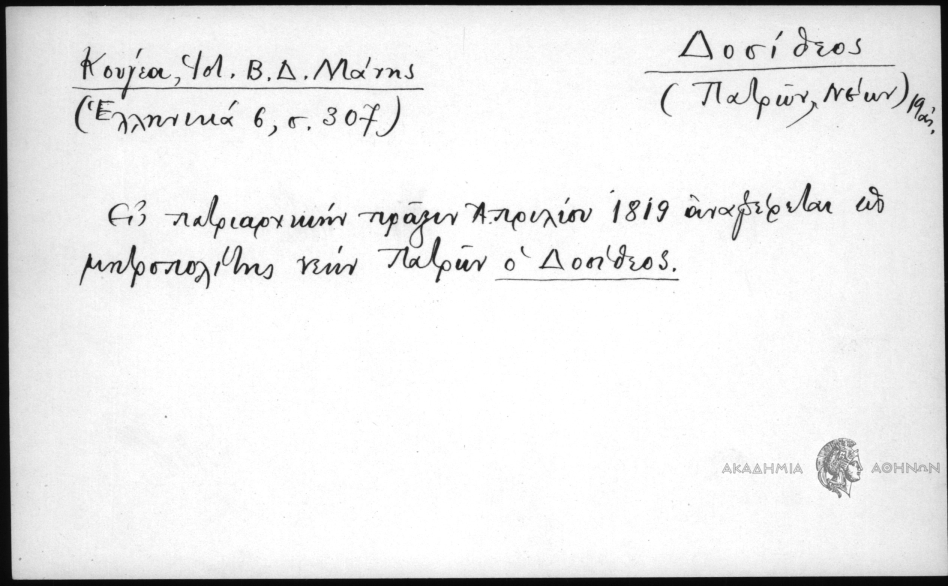 Κουγέα, Ἱστ. Β. Δ. Μάνης
(Ἑλληνικά 6, σ. 307)
Δοσίθεος
(Πατρῶν, Νέων) 19 αἰ.
Εἰς πατριαρχικήν πρᾶξιν Ἀπριλίου 1819 ἀναφέρεται ὡς
μητροπολίτης νέων Πατρῶν ὁ Δοσίθεος.
ΑΚΑΔΗΜΙΑ ΑΘΗΝΩΝ